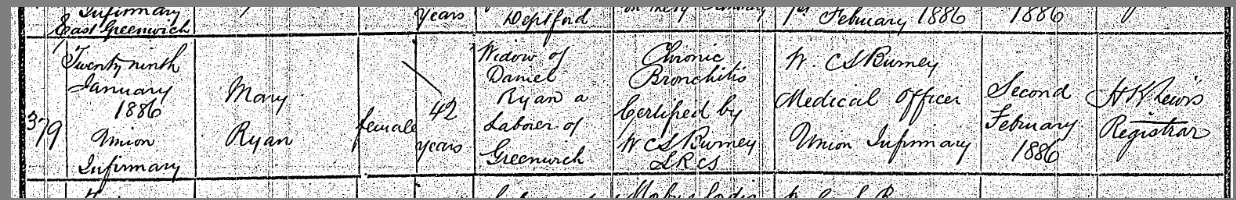 Infirmary
East Greenwich
years
Deptford
1st February 1886
1886
379
Twenty ninth
January
1886
Union
Infirmary
Mary
Ryan
female
42
years
Widow of
Daniel
Ryan a
Laborer of
Greenwich
Chronic
Bronchitis
Certified by
W C S Burney
L R C S
W. C S Burney
Medical Officer
Union Infirmary
Second
February
1886
Registrar